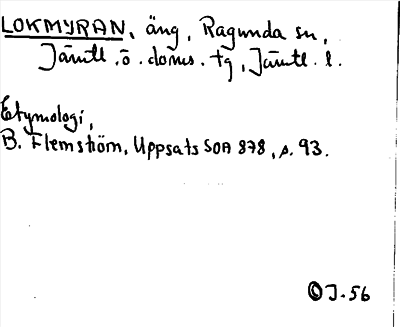 LOKMYRAN, äng, Ragunda sn,
Jämtl. ö. doms. tg, Jämtl. l.
Etymologi,
B. Flemström, Uppsats SOA 878, s. 93.
©J-56